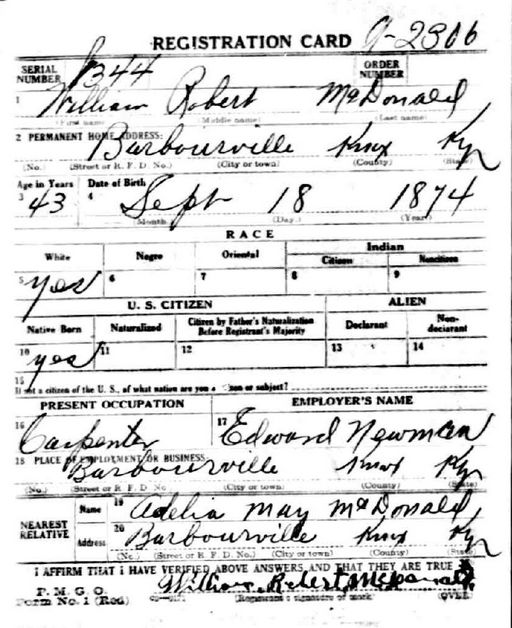 REGISTRATION CARD 9-2306
SERIAL NUMBER 1344 ORDER NUMBER
1 William Robert McDonald
(First name) (Middle name) (Last name)
2 PERMANENT HOME ADDRESS:
Barbourville Knox Ky
(No.) (Street or R. F. D. No.) (City or town) (County) (State)
Age in Years Date of Birth
3 43 4 Sept 18 1874
(Month.) (Day.) (Year.)
RACE
White Negro Oriental Indian
Citizen Noncitizen
5 yes 6 7 8 9
U. S. CITIZEN ALIEN
Native Born Naturalized Citizen by Father's Naturalization Before Registrant's Majority Declarant Non-declarant
10 yes 11 12 13 14
15
If not a citizen of the U. S., of what nation are you a citizen or subject?
PRESENT OCCUPATION EMPLOYER'S NAME
16 Carpenter 17 Edward Newman
18 PLACE OF EMPLOYMENT OR BUSINESS
Barbourville Knox Ky
(No.) (Street or R. F. D. No.) (City or town) (County) (State)
NEAREST RELATIVE Name 19 Adelia May McDonald
Address 20 Barbourville Knox Ky
(No.) (Street or R. F. D. No.) (City or town) (County) (State)
I AFFIRM THAT I HAVE VERIFIED ABOVE ANSWERS AND THAT THEY ARE TRUE
P. M. G. O.
Form No. 1 (Red) William Robert McDonald
(Registrant's signature or mark) (OVER)